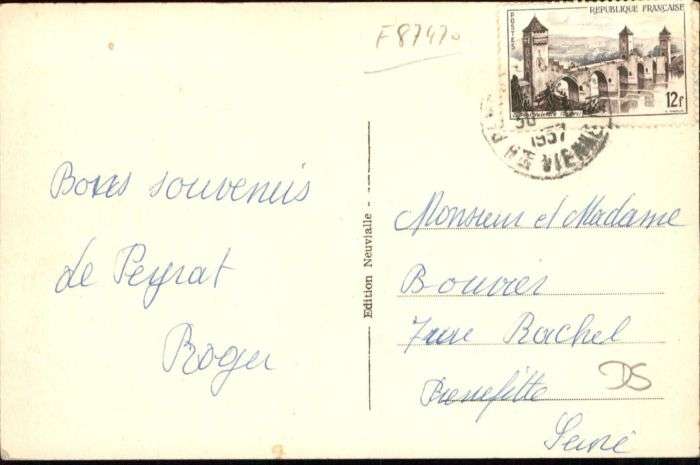 F87470
RÉPUBLIQUE FRANÇAISE
POSTES
12F
30
1957
Hte VIENNE
Bons souvenirs
de Peyrat
Roger
Edition Neuvialle -
Monsieur et Madame
Bouvier
7 rue Rachel
Seine
DS